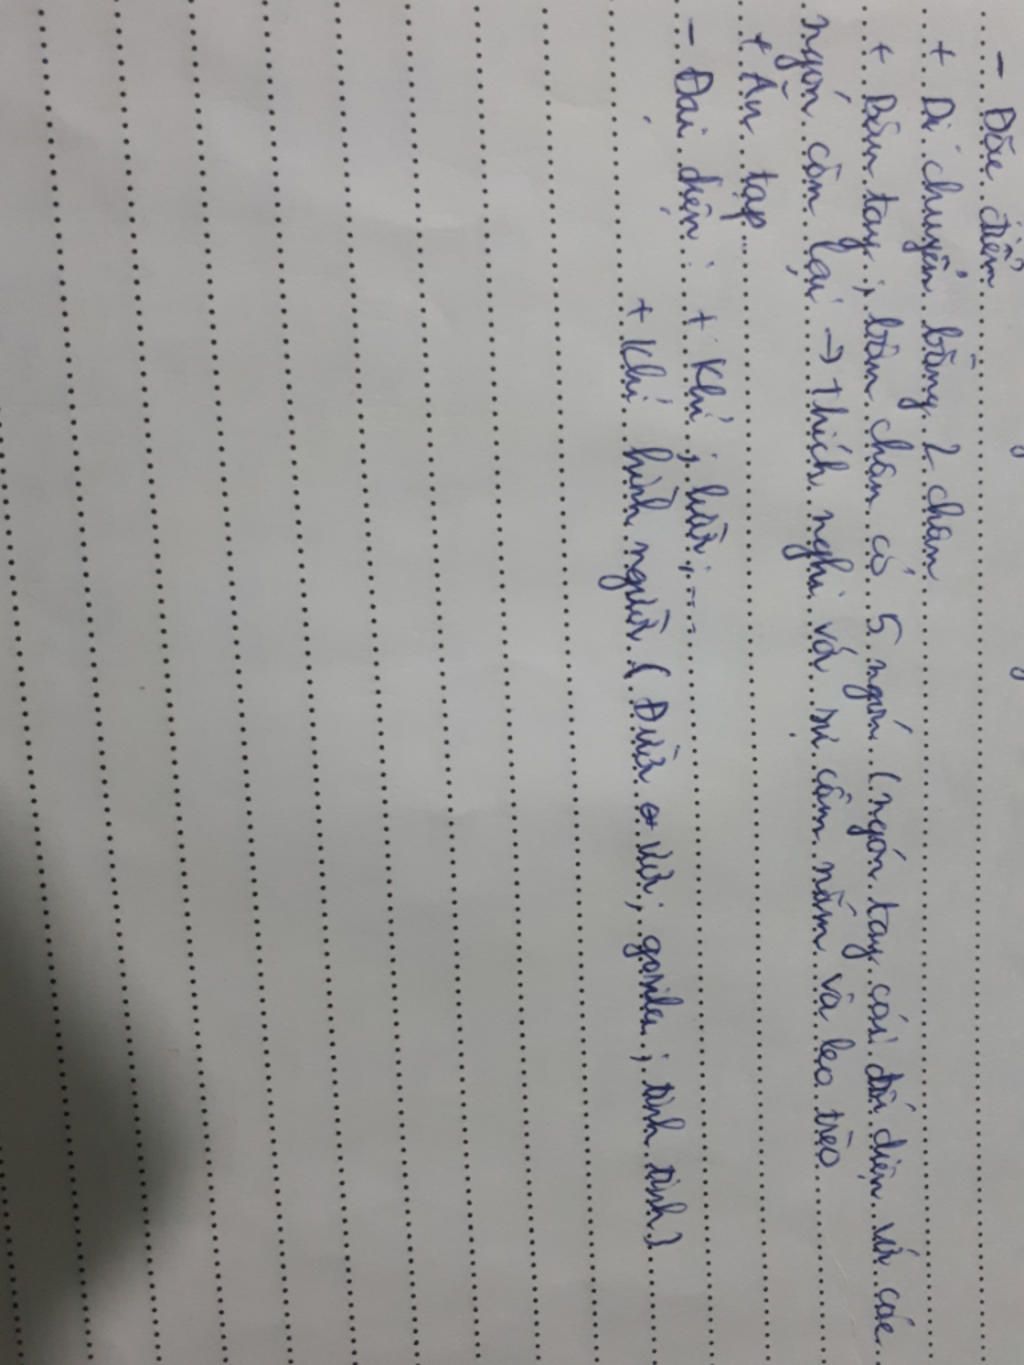 - Đặc điểm
+ Di chuyển bằng 2 chân
+ Bàn tay, bàn chân có 5 ngón (ngón tay cái đối diện với các
ngón còn lại → thích nghi với sự cầm nắm và leo trèo
+ Ăn tạp
- Đại diện: + Khỉ, vượn,...
+ Khỉ hình người (Đười ươi, gorila, tinh tinh)